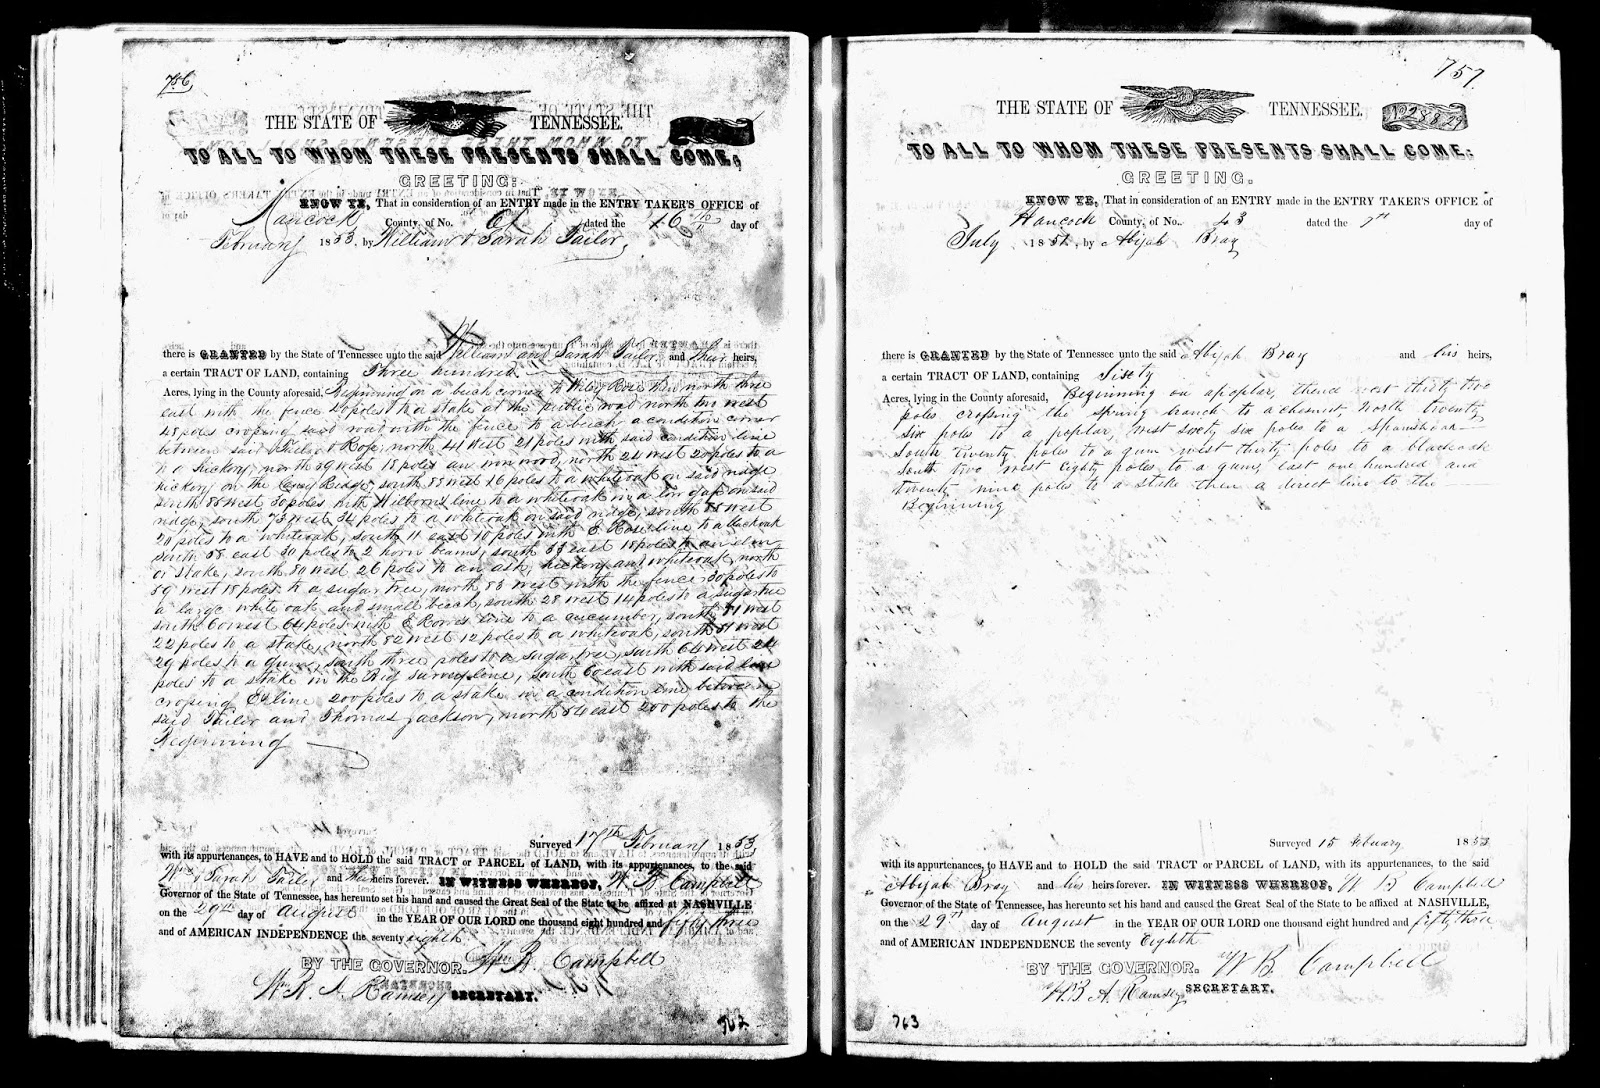 756,
THE STATE OF TENNESSEE,
TO ALL TO WHOM THESE PRESENTS SHALL COME;
GREETING:
KNOW YE, That in consideration of an ENTRY made in the ENTRY TAKER'S OFFICE of
Hancock County, of No. dated the 16th day of
February 1853, by William & Sarah Tailor,
there is GRANTED by the State of Tennessee unto the said William and Sarah Tailor and their heirs,
a certain TRACT OF LAND, containing Three hundred
Acres, lying in the County aforesaid, Beginning on a beech corner to Rose north three
east with the fence poles to a stake at the public road north ten west
48 poles crossing said road with the fence to a beech a condition corner
between said & Rose, north 41 west 21 poles with said condition line
to a hickory, north 39 west 18 poles an iron wood, north 24 west 20 poles to a
hickory on the Ridge, south 83 west 26 poles to a whiteoak on said ridge
south 86 west 30 poles with Wilborns line to a whiteoak in a low gap on said
ridge, south 73 west 34 poles to a whiteoak on said ridge, south west
20 poles to a whiteoak, south 11 east 10 poles with line to a blackoak
south 58 east 30 poles to 2 horn beams, south 53 east 18 poles to an elm
or stake, south 80 west 26 poles to an ash, hickory and whiteoak, north
59 west 18 poles to a sugar tree, north 83 west with the fence 30 poles to
a large white oak and small beech, south 28 west 14 poles to a sugartree
south 60 west 64 poles with line to a cucumber, south 81 west
22 poles to a stake, north 82 west 12 poles to a whiteoak, south west
29 poles to a gum, south three poles to a sugar tree, south 64 west 24
poles to a stake in the Big survey line, south 60 east with said line
crossing line 200 poles to a stake in a condition line between
said Tailor and Thomas Jackson, north 54 east 200 poles to the
Beginning
Surveyed 17th February 1853,
with its appurtenances, to HAVE and to HOLD the said TRACT or PARCEL of LAND, with its appurtenances, to the said
Wm & Sarah Tailor and their heirs forever. IN WITNESS WHEREOF, W B Campbell
Governor of the State of Tennessee, has hereunto set his hand and caused the Great Seal of the State to be affixed at NASHVILLE
on the 29th day of August in the YEAR OF OUR LORD one thousand eight hundred and fifty three
and of AMERICAN INDEPENDENCE the seventy eighth
BY THE GOVERNOR. Wm B. Campbell
W B A Ramsey SECRETARY.
762
757.
THE STATE OF TENNESSEE. 28829
TO ALL TO WHOM THESE PRESENTS SHALL COME:
GREETING.
KNOW YE, That in consideration of an ENTRY made in the ENTRY TAKER'S OFFICE of
Hancock County, of No. 43 dated the 7th day of
July 1851, by Abijah Bray
there is GRANTED by the State of Tennessee unto the said Abijah Bray and his heirs,
a certain TRACT OF LAND, containing Sixty
Acres, lying in the County aforesaid, Beginning on a poplar, thence west thirty two
poles crossing the spring branch to a chesnut, North twenty
six poles to a poplar, west sixty six poles to a Spanishoak
South twenty poles to a gum west thirty poles to a blackoak
South two west Eighty poles to a gum, east one hundred and
twenty nine poles to a stake then a direct line to the
Beginning
Surveyed 15 February 1853
with its appurtenances, to HAVE and to HOLD the said TRACT or PARCEL of LAND, with its appurtenances, to the said
Abijah Bray and his heirs forever. IN WITNESS WHEREOF, W B Campbell
Governor of the State of Tennessee, has hereunto set his hand and caused the Great Seal of the State to be affixed at NASHVILLE,
on the 29th day of August in the YEAR OF OUR LORD one thousand eight hundred and fifty three
and of AMERICAN INDEPENDENCE the seventy Eighth
BY THE GOVERNOR. W B Campbell
W B A Ramsey SECRETARY.
763